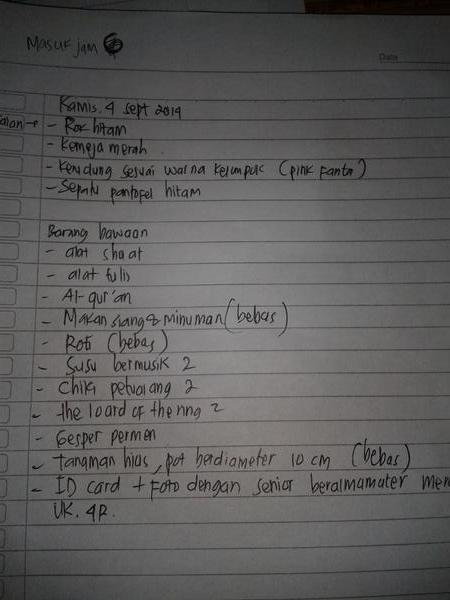 Masuk jam
Date
Kamis, 4 sept 2014
→ - Rok hitam
- Kemeja merah
- Kerudung sesuai warna kelompok (pink fanta)
- Sepatu pantofel hitam
Barang bawaan
- alat shoat
- alat tulis
- Al-qur'an
- Makan siang & minuman (bebas)
- Roti (bebas)
- Susu bermusik 2
- Chiki petualang 2
- the loard of the ring 2
- Gesper permen
- Tanaman hias, pot berdiameter 10 cm (bebas)
- ID card + Foto dengan senior beralmamater
UK. 4R.